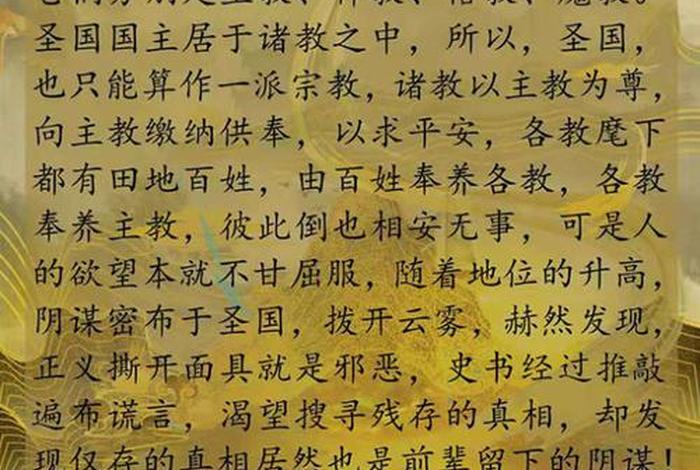 圣国国主居于诸教之中，所以，圣国，
也只能算作一派宗教，诸教以主教为尊，
向主教缴纳供奉，以求平安，各教麾下
都有田地百姓，由百姓奉养各教，各教
奉养主教，彼此倒也相安无事，可是人
的欲望本就不甘屈服，随着地位的升高，
阴谋密布于圣国，拨开云雾，赫然发现，
正义撕开面具就是邪恶，史书经过推敲
遍布谎言，渴望搜寻残存的真相，却发
现仅存的真相居然也是前辈留下的阴谋！